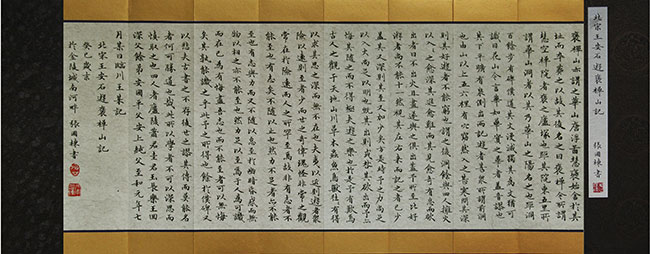 北宋王安石遊褒禪山記
張國棟書
褒禪山亦謂之華山唐浮圖慧褒始舍於其
址而卒葬之以故其後名之曰褒禪今所謂
慧空禪院者褒之廬塚也距其院東五里所
謂華山洞者以其乃華山之陽名之也距洞
百餘步有碑僕道其文漫滅獨其為文猶可
識曰花山今言華如華實之華者蓋音謬也
其下平曠有泉側出而記遊者甚眾所謂前洞
也由山以上五六里有穴窈然入之甚寒問其深
則其好遊者不能窮也謂之後洞餘與四人擁火
以入入之愈深其進愈難而其見愈奇有怠而欲
出者曰不出火且盡遂與之俱出蓋予所至比好
遊者尚不能十一然視其左右來而記之者已少
蓋其又深則其至又加少矣方是時予之力尚足
以入火尚足以明也既其出則或咎其欲出者而予亦
悔其隨之而不得極夫遊之樂也於是予有歎焉
古人之觀于天地山川草木蟲魚鳥獸往往有得
以其求思之深而無不在也夫夷以近則遊者眾
險以遠則至者少而世之奇偉瑰怪非常之觀
常在於險遠而人之所罕至焉故非有志者不
能至也有志矣不隨以止也然力不足者亦不能
至也有志與力而又不隨以怠至於幽暗昏惑而無
物以相之亦不能至也然力足以至焉于人為可譏
而在己為有悔盡吾志也而不能至者可以無悔
矣其孰能譏之乎此予之所得也餘於僕碑又
以悲夫古書之不存後世之謬其傳而莫能名
者何可勝道也哉此所以學者不可以不深思而
慎取之也四人者廬陵蕭君圭君玉長樂王回
深父餘弟安國平父安上純父至和元年七
月某日臨川王某記
北宋王安石遊褒禪山記
癸巳
於金陵城南河畔 張國棟書